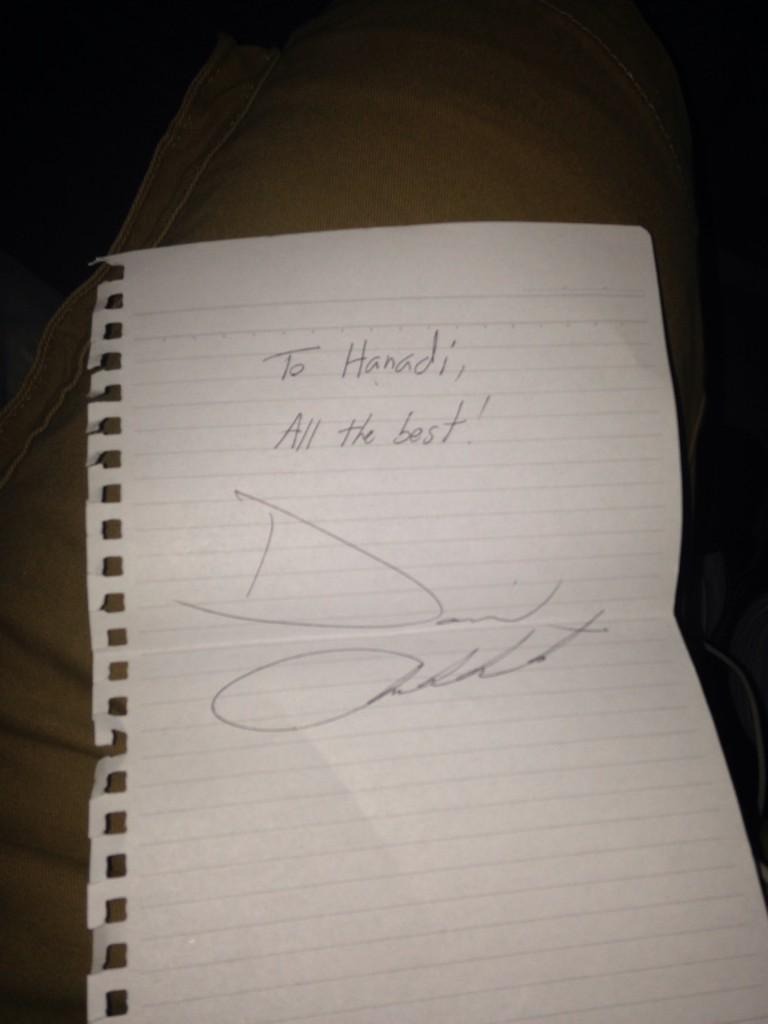 To Hanadi,
All the best!